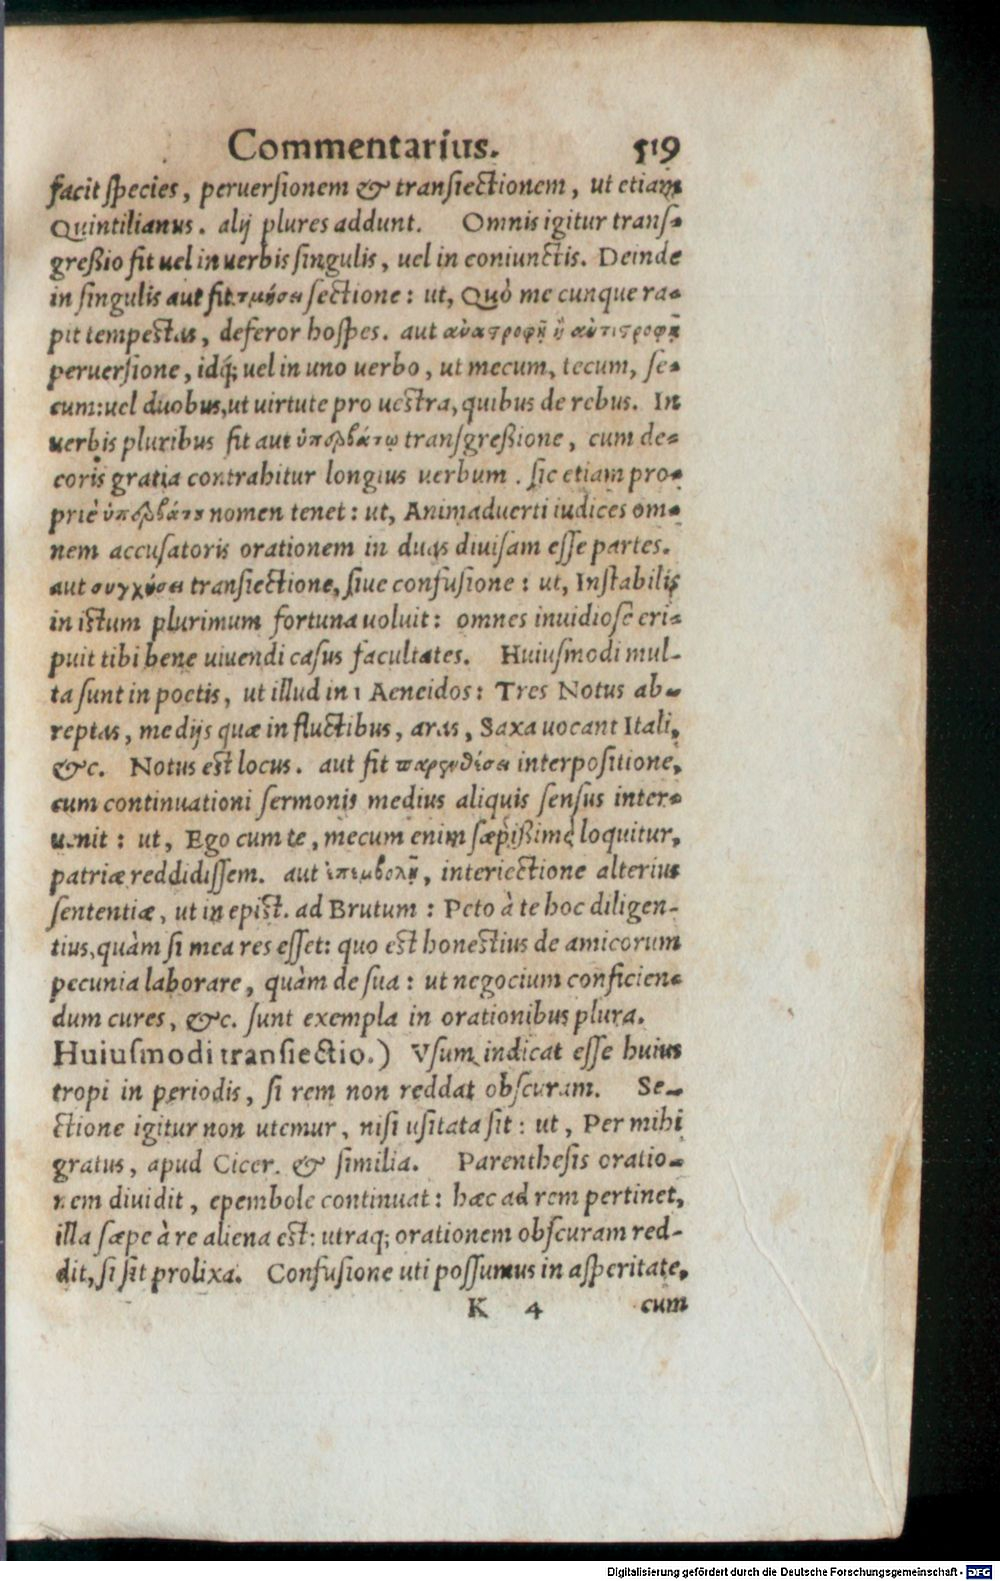 Commentarius. 519
facit species, peruersionem & transiectionem, ut etiam
Quintilianus. alij plures addunt. Omnis igitur trans-
greßio fit uel in uerbis singulis, uel in coniunctis. Deinde
in singulis aut fit τμήσει sectione: ut, Quò me cunque ra-
pit tempestas, deferor hospes. aut ἀναστροφῇ ἢ ἀντιστροφῇ
peruersione, idq́; uel in uno uerbo, ut mecum, tecum, se-
cum: uel duobus, ut uirtute pro uestra, quibus de rebus. In
uerbis pluribus fit aut ὑπερβάτῳ transgreßione, cum de-
coris gratia contrahitur longius uerbum. sic etiam pro-
priè ὑπερβάτου nomen tenet: ut, Animaduerti iudices om-
nem accusatoris orationem in duas diuisam esse partes.
aut συγχύσει transiectione, siue confusione: ut, Instabilis
in istum plurimum fortuna uoluit: omnes inuidiose eri-
puit tibi bene uiuendi casus facultates. Huiusmodi mul-
ta sunt in poetis, ut illud in 1 Aeneidos: Tres Notus ab-
reptas, medijs quæ in fluctibus, aras, Saxa uocant Itali,
&c. Notus est locus. aut fit παρενθέσει interpositione,
cum continuationi sermonis medius aliquis sensus inter-
uenit: ut, Ego cum te, mecum enim sæpißime loquitur,
patriæ reddidissem. aut ἐπεμβολῇ, interiectione alterius
sententiæ, ut in epist. ad Brutum: Peto à te hoc diligen-
tius, quàm si mea res esset: quo est honestius de amicorum
pecunia laborare, quàm de sua: ut negocium conficien-
dum cures, &c. sunt exempla in orationibus plura.
Huiusmodi transiectio.) Vsum indicat esse huius
tropi in periodis, si rem non reddat obscuram. Se-
ctione igitur non utemur, nisi usitata sit: ut, Per mihi
gratus, apud Cicer. & similia. Parenthesis oratio-
nem diuidit, epembole continuat: hæc ad rem pertinet,
illa sæpe à re aliena est: utraq; orationem obscuram red-
dit, si sit prolixa. Confusione uti possumus in asperitate,
K 4 cum
Digitalisierung gefördert durch die Deutsche Forschungsgemeinschaft - DFG